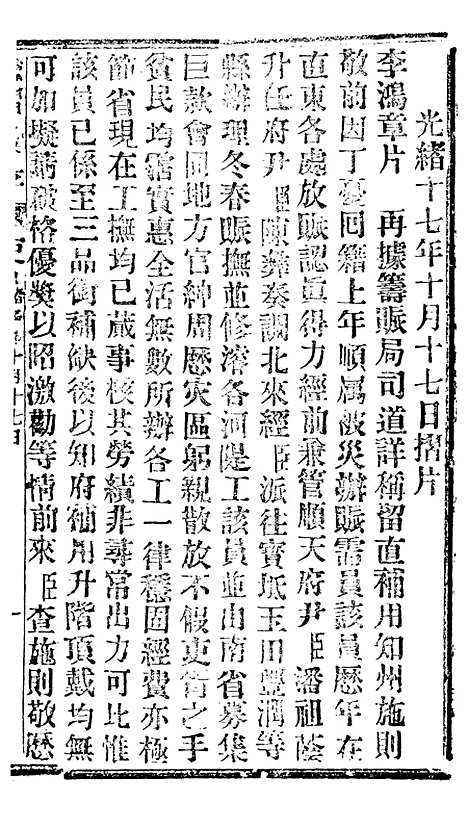 光緒十七年十月十七日摺片
李鴻章片　再據籌賑局司道詳稱留直補用知州施則
敬前因丁憂回籍上年順属被災辦賑需員該員歷年在
直東各處放賑認眞得力經前兼管順天府尹臣潘祖蔭
升任府尹臣陳彝奏調北來經臣派往寶坻玉田豐潤等
縣辦理冬春賑撫並修濬各河隄工該員並由南省募集
巨款會同地方官紳周歷灾區躬親散放不假吏胥之手
貧民均霑實惠全活無數所辦各工一律穩固經費亦極
節省現在工撫均已蕆事核其勞績非尋常出力可比惟
該員已係至三品銜補缺後以知府補用升階頂戴均無
可加擬請破格優獎以昭激勸等情前來臣查施則敬歷
十月十七日